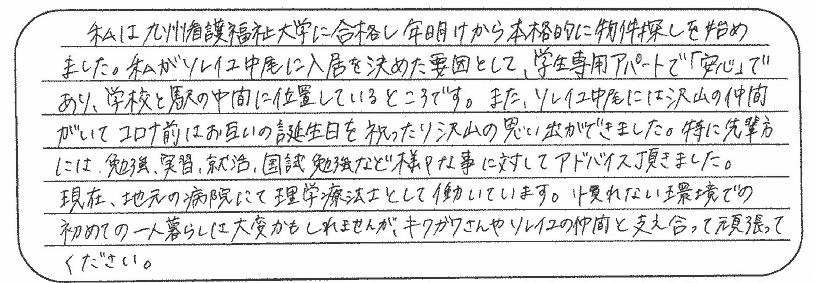 私は九州看護福祉大学に合格し年明けから本格的に物件探しを始め
ました。私がソレイユ中尾に入居を決めた要因として、学生専用アパートで「安心」で
あり、学校と駅の中間に位置しているところです。また、ソレイユ中尾には沢山の仲間
がいてコロナ前はお互いの誕生日を祝ったり沢山の思い出ができました。特に先輩方
には、勉強、実習、就活、国試勉強など様々な事に対してアドバイス頂きました。
現在、地元の病院にて理学療法士として働いています。慣れない環境での
初めての一人暮らしは大変かもしれませんが、キクガワさんやソレイユの仲間と支え合って頑張って
ください。